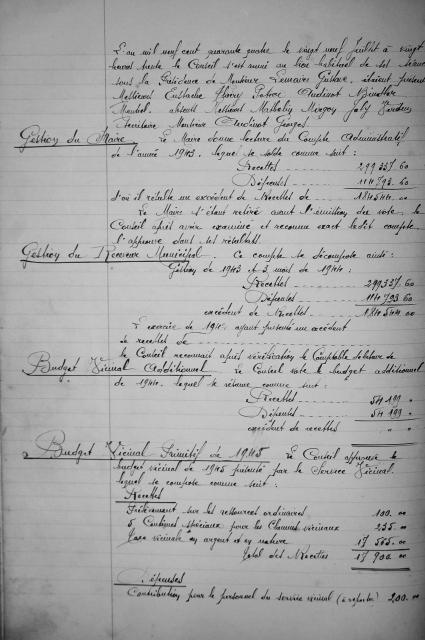 L'an mil neuf cent quarante quatre le vingt neuf Juillet à vingt
heures trente le Conseil s'est réuni au lieu habituel de ses séances
sous la Présidence de Monsieur Lemaire Gustave, étaient présents
Messieurs Eustache Patrice Audinot
absents Messieurs Mathelin Joly
Secrétaire Monsieur Audinot Georges.
Gestion du Maire Le Maire donne lecture du Compte Administratif
de l'année 1943, lequel se solde comme suit :
Recettes 299337.60
Dépenses 114793.60
d'où il résulte un excédent de Recettes de 184544.00
Le Maire s'étant retiré avant l'émission du vote, le
Conseil après avoir examiné et reconnu exact ledit compte
l'approuve dans ses résultats.
Gestion du Receveur Municipal. Ce compte se décompose ainsi :
Gestion de 1943 et 3 mois de 1944 :
Recettes 299337.60
Dépenses 114793.60
excédent de Recettes 184544.00
L'exercice de ayant présenté un excédent
de recettes de
le Conseil reconnait après vérification le Comptable
Budget Vicinal Additionnel Le Conseil vote le budget additionnel
de 1944 lequel se résume comme suit :
Recettes 54199 "
Dépenses 54199 "
excédent de recettes " "
Budget Vicinal Primitif de 1945 Le Conseil approuve le
budget vicinal de 1945 présenté par le Service Vicinal
lequel se compose comme suit :
Recettes
Prélèvement sur les ressources ordinaires 100.00
5 Centimes spéciaux pour les Chemins vicinaux 235.00
Taxe vicinale en argent et en nature 17565.00
Total des Recettes 17900.00
Dépenses
Contribution pour le personnel du service vicinal (à reporter) 200.00